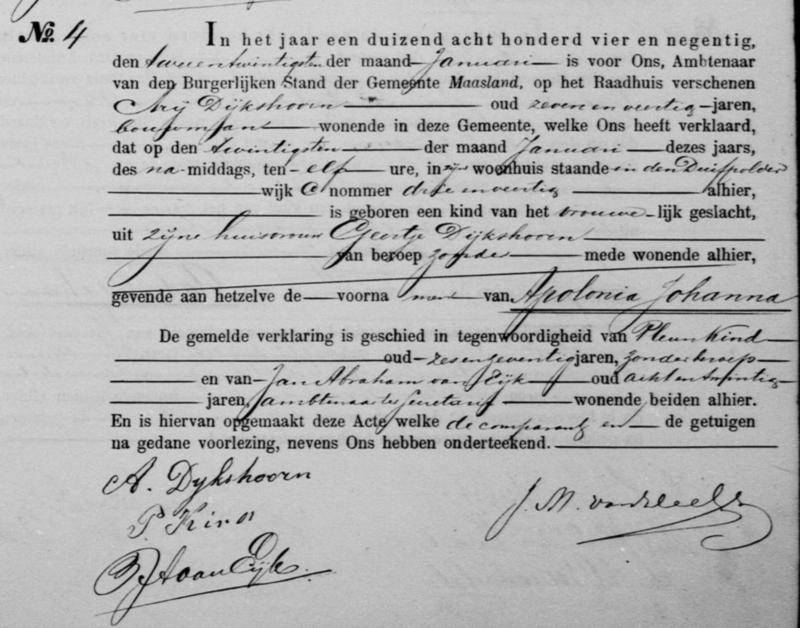 No. 4 In het jaar een duizend acht honderd vier en negentig,
den tweeentwintigsten der maand Januari is voor Ons, Ambtenaar
van den Burgerlijken Stand der Gemeente Maasland, op het Raadhuis verschenen
Arij Dijkshoorn oud zeven en veertig jaren,
bouwman wonende in deze Gemeente, welke Ons heeft verklaard,
dat op den twintigsten der maand Januari dezes jaars,
des na middags, ten elf ure, in zijn woonhuis staande in den Duifpolder
wijk C nommer drie en veertig alhier,
is geboren een kind van het vrouwe lijk geslacht,
uit zijne huisvrouw Geertje Dijkshoorn
van beroep zonder mede wonende alhier,
gevende aan hetzelve de voorna men van Apolonia Johanna
De gemelde verklaring is geschied in tegenwoordigheid van Pleun Kind
oud zesenzeventig jaren, zonder beroep
en van Jan Abraham van Eijk oud achtentwintig
jaren, ambtenaar ter Secretarie wonende beiden alhier.
En is hiervan opgemaakt deze Acte welke de comparant en de getuigen
na gedane voorlezing, nevens Ons hebben onderteekend.
A. Dykshoorn
P. Kind
J. M. van der
JA van Eijk.